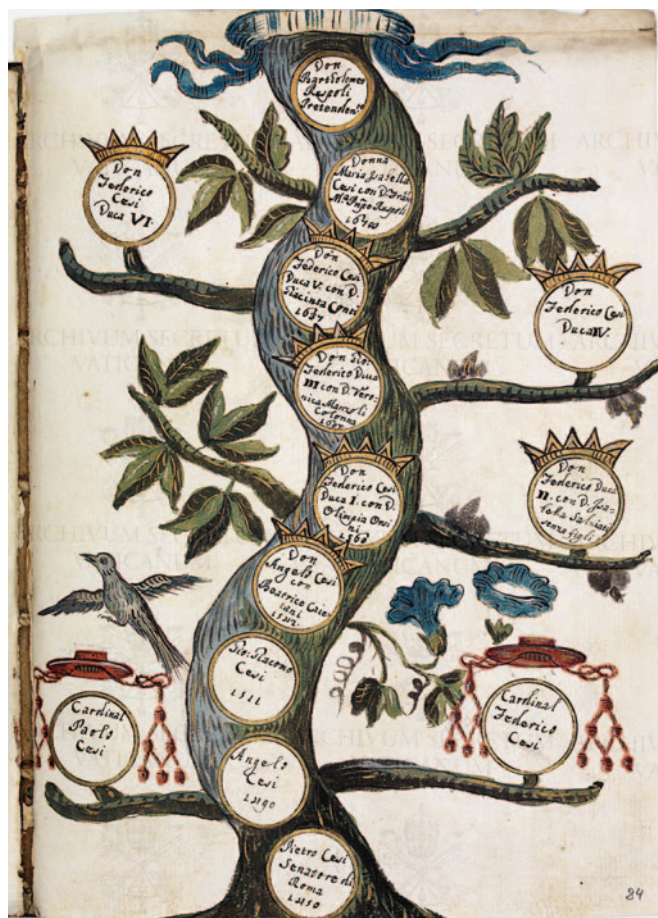 Don
Bartolomeo
Ruspoli
Pretendente
Donna
Maria Isabella
Cesi con D. Fran.
Ruspoli
Don
Federico
Cesi
Duca VI.
Don
Federico Cesi
Duca V. con D.
Giacinta Conti
Don
Federico Cesi
Duca IV.
Don Gio:
Federico Duca
III con D. Vero-
nica
Colonna
Don
Federico Cesi
Duca I. con D.
Olimpia Orsi
ni
Don
Federico Duca
II. con D. Isa-
bella Salviati
senza figli
Don
Angelo Cesi
con
Beatrice Caie-
tani
Gio: Giacomo
Cesi
1511
Cardinal
Paolo
Cesi
Cardinal
Federico
Cesi
Angelo
Cesi
1490
Pietro Cesi
Senatore di
Roma
1450
84
ARCHIVUM SECRETUM
VATICANUM